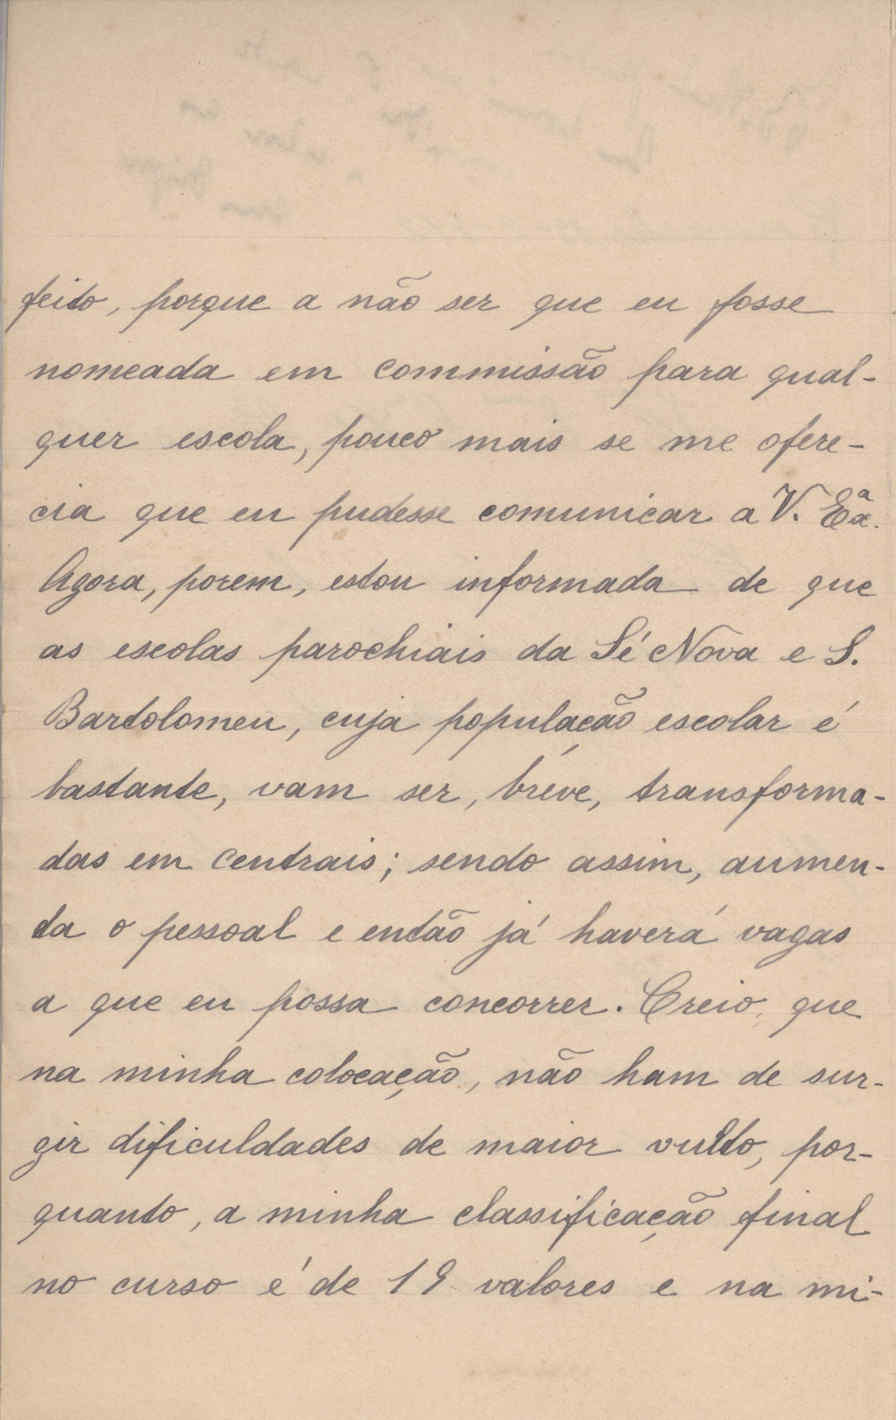 feito, porque a não ser que eu fosse
nomeada em commissão para qual-
quer escola, pouco mais se me ofere-
cia que eu pudesse comunicar a V. Eª.
Agora, porem, estou informada de que
as escolas parochiais da Sé Nova e S.
Bartolomeu, cuja população escolar é
bastante, vam ser, bréve, transforma-
das em centrais; sendo assim, aumen-
ta o pessoal e então já haverá vagas
a que eu possa concorrer. Creio, que
na minha colocação, não ham de sur-
gir dificuldades de maior vulto, por-
quanto, a minha classificação final
no curso é de 19 valores e na mi-